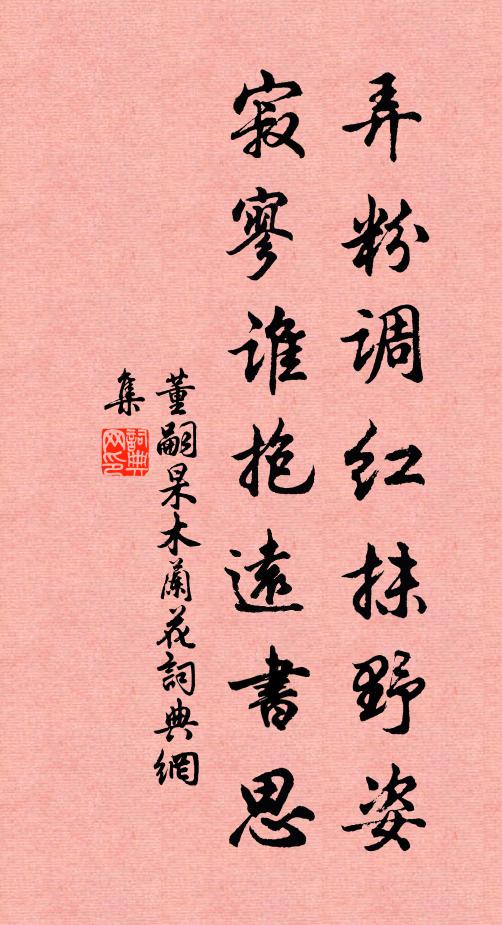 弄粉调红抹野姿
寂寥谁抱遠書思
董嗣杲木蘭花詞典網
集
詞典
网印